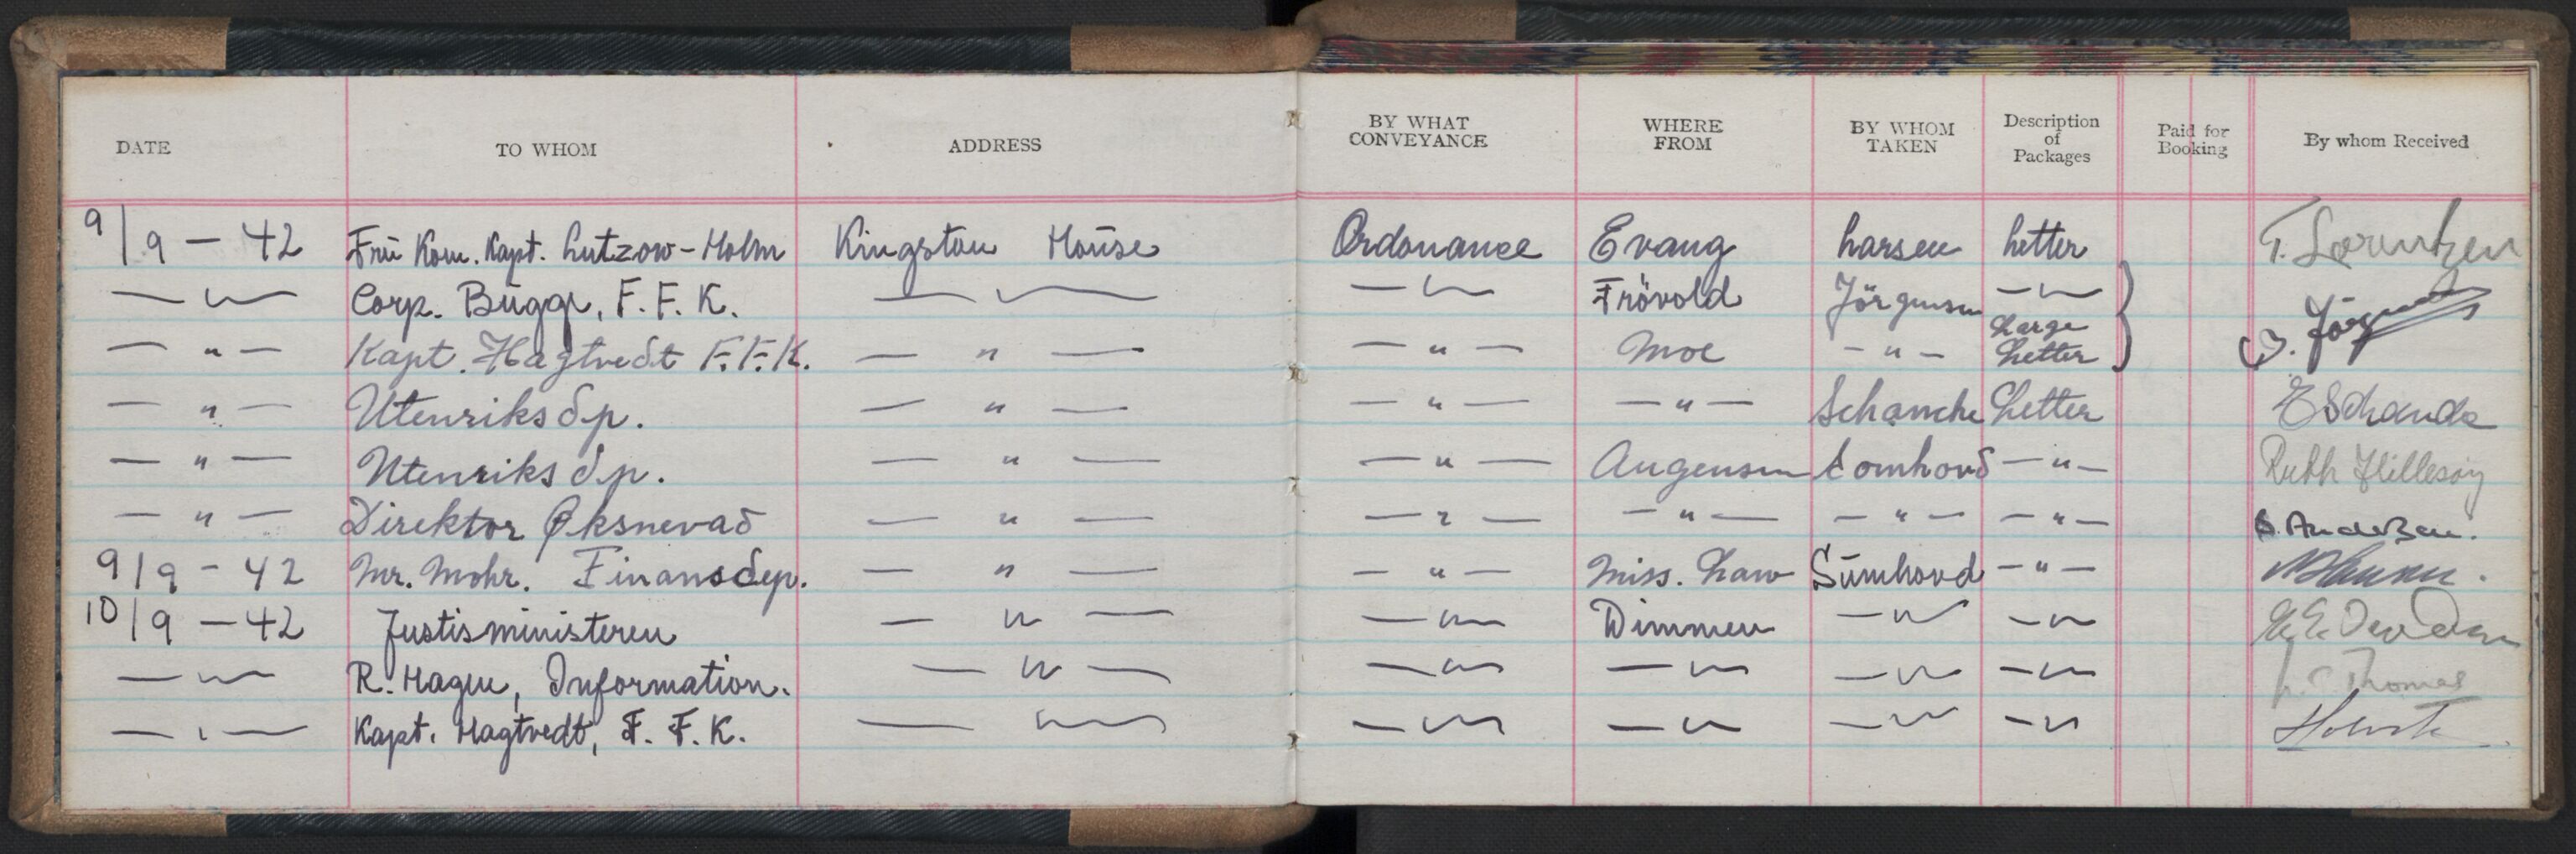 DATE TO WHOM ADDRESS BY WHAT CONVEYANCE WHERE FROM BY WHOM TAKEN Description of Packages Paid for Booking By whom Received
9/9 - 42 Frü Kom. Kapt. Lutzow-Holm Kingston Hoüse Ordonance Evang Larsen Letter T. Lorentzen
— " — Corp. Bügge, F. F. K. — " — — " — Frövold Jörgensen — " —
— " — Kapt. Hagtvedt F.F.K. — " — — " — Moe — " — Large Letter
— " — Utenriksdp. — " — — " — — " — Schanche Letter
— " — Utenriksdp. — " — — " — Augensen — " — Ruth Hillesøy
— " — Direktor Øksnevad — " — — " — — " — — " — — " — S. Andersen.
9/9 - 42 Mr. Mohr. Finansdep. — " — — " — Miss. Law Sümhovd — " —
10/9 - 42 Justisministeren — " — — " — Dimmen — " — — " —
— " — R. Hagen, Information. — " — — " — — " — — " — — " — Thomas
— " — Kapt. Hagtvedt, F. F. K. — " — — " — — " — — " — — " —